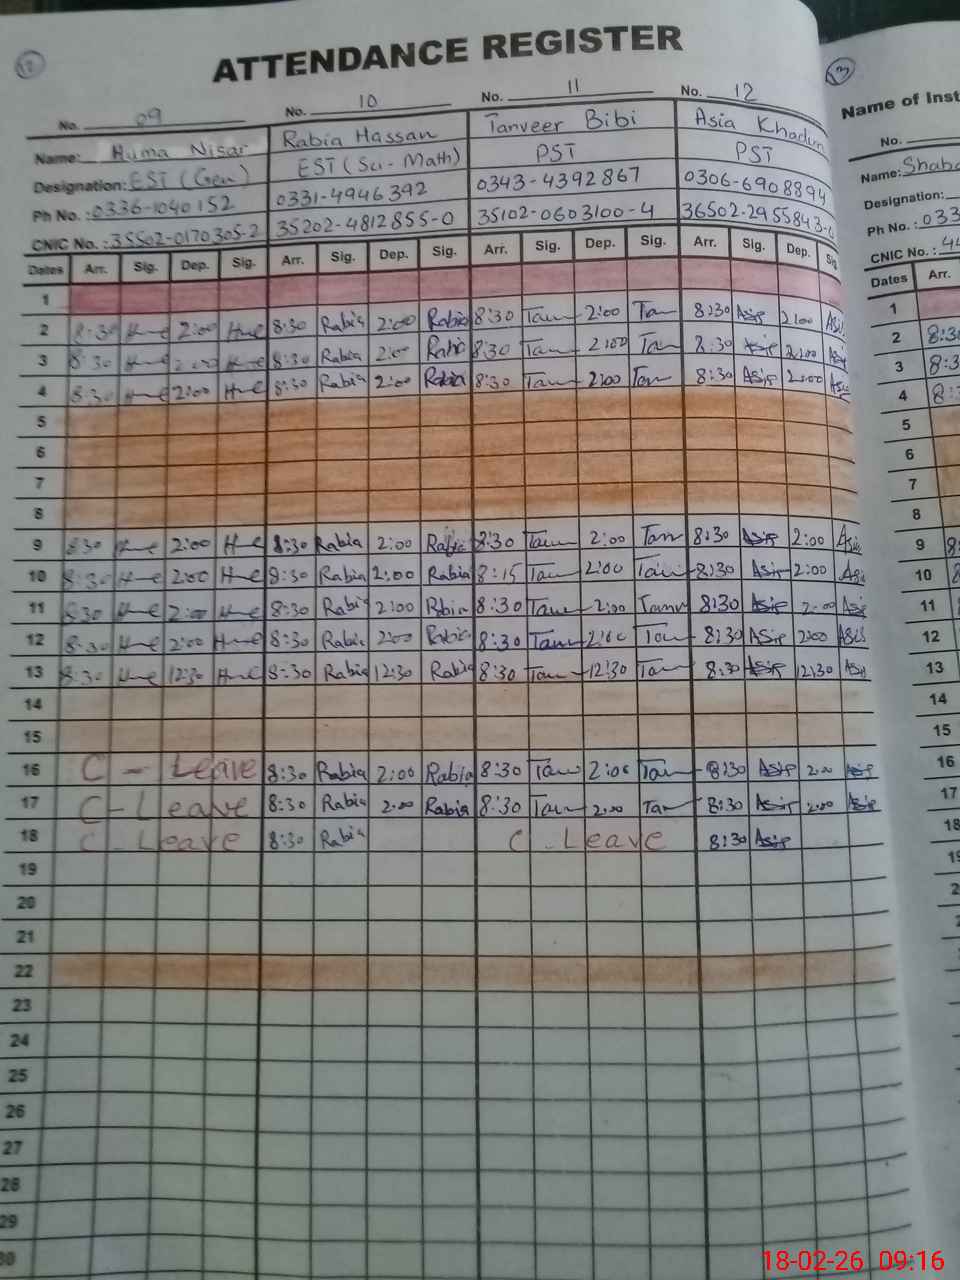 ATTENDANCE REGISTER
No. 09 No. 10 No. 11 No. 12
Name: Huma Nisar Rabia Hassan Tanveer Bibi Asia Khadum
Designation: EST (Gen) EST (Sci-Math) PST PST
Ph No.: 0336-1040152 0331-4946392 0343-4392867 0306-6908894
CNIC No.: 35502-0170305-2 35202-4812855-0 35102-0603100-4 36502-2955843-
Dates Arr. Sig. Dep. Sig. Arr. Sig. Dep. Sig. Arr. Sig. Dep. Sig. Arr. Sig. Dep. Sig
1
2 8:30 2:00 8:30 Rabia 2:00 Rabia 8:30 Tan 2:00 Tan 8:30 Asip 2:00
3 8:30 2:00 8:30 Rabia 2:00 Rabia 8:30 Tan 2:00 Tan 8:30 Asip 2:00
4 8:30 2:00 8:30 Rabia 2:00 Rabia 8:30 Tan 2:00 Tan 8:30 Asip 2:00
5
6
7
8
9 8:30 2:00 8:30 Rabia 2:00 Rabia 8:30 Tan 2:00 Tan 8:30 Asip 2:00
10 8:30 2:00 8:30 Rabia 2:00 Rabia 8:15 Tan 2:00 Tan 8:30 Asip 2:00
11 8:30 2:00 8:30 Rabia 2:00 8:30 Tan 2:00 8:30 Asip 2:00
12 8:30 2:00 8:30 Rabia 2:00 Rabia 8:30 Tan 2:00 Tan 8:30 Asip 2:00
13 8:30 12:30 8:30 Rabia 12:30 Rabia 8:30 Tan 12:30 Tan 8:30 Asip 12:30
14
15
16 C - Leave 8:30 Rabia 2:00 Rabia 8:30 Tan 2:00 Tan 8:30 Asip 2:00 Asip
17 C - Leave 8:30 Rabia 2:00 Rabia 8:30 Tan 2:00 Tan 8:30 Asip 2:00 Asip
18 C - Leave 8:30 Rabia C - Leave 8:30 Asip
19
20
21
22
23
24
25
26
27
28
29
30
Name of Inst
No.
Name: Shaba
Designation:
Ph No.: 033
CNIC No.:
Dates Arr.
1
2 8:30
3 8:3
4 8:
5
6
7
8
9 8
10 8
11
12
13
14
15
16
17
18
19
2
18-02-26 09:16